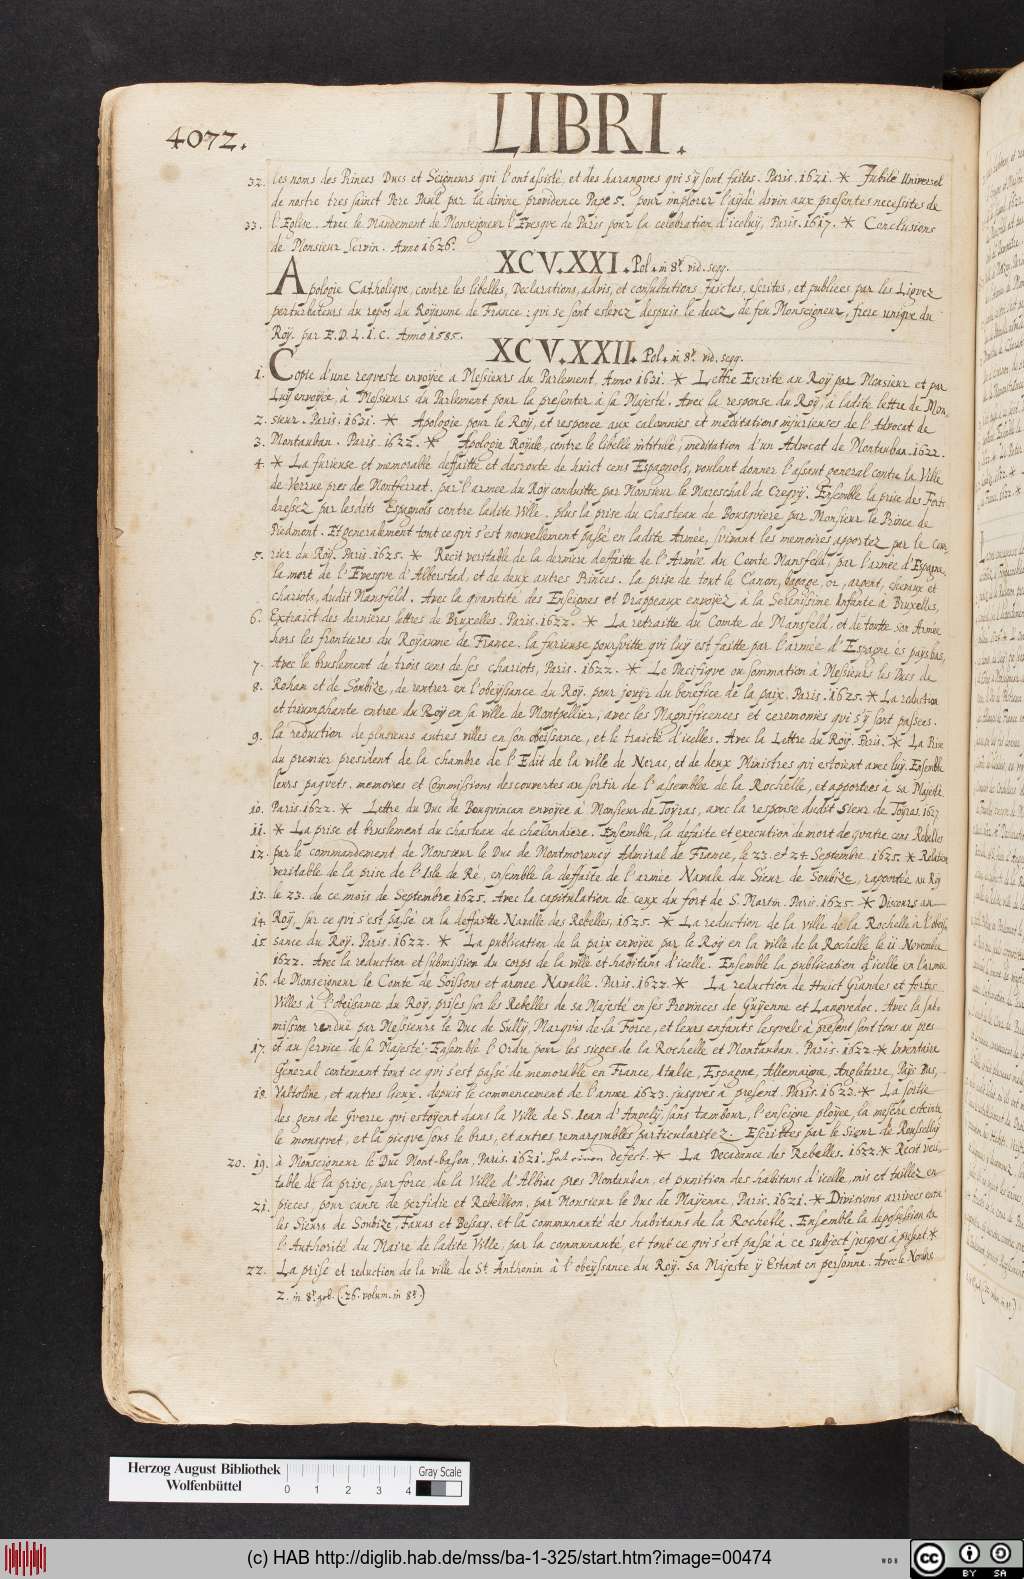 4072.
LIBRI.
32. les noms des Princes Ducs et Seigneurs qui l'ont assisté, et des harangves qvi s'y sont faittes. Paris. 1621. * Jubilé Universel
de nostre tres sainct Pere Paul par la divine providence Pape 5. pour implorer l'ayde divin aux presentes necessites de
33. l'Eglise. Avec le Mandement de Monseigneur l'Evesqve de Paris pour la celebration d'iceluy, Paris. 1617. * Conclusions
de Monsieur Servin. Anno 1626.
XCV.XXI. Pol. in 8º. vid. seqq.
Apologie Catholiqve, contre les libelles, Declarations, advis, et consultations faictes, escrites, et publiées par les Ligvez
perturbateurs du repos du Royaume de France: qvi se sont eslevez despuis le decez de feu Monseigneur, frere uniqve du
Roy. par E.D.L.I.C. Anno 1585.
XCV.XXII. Pol. in 8º. vid. seqq.
1. Copie d'une reqveste envoyée a Messieurs du Parlement. Anno 1631. * Lettre Escrite au Roy par Monsieur et par
Luy envoyée, a Messieurs du Parlement pour la presenter à sa Majesté. Avec la response du Roy, a ladite lettre de Mon,
2. sieur. Paris. 1631. * Apologie pour le Roy, et responce aux calomnies et meditations injurieuses de l'Advocat de
3. Montauban. Paris. 1622. * Apologie Royale, contre le libelle intitulé, meditation d'un Advocat de Montauban. 1622.
4. * La furieuse et memorable deffaitte et desroute de huict cens Espagnols, voulant donner l'assaut general contre la Ville
de Verrue pres de Montferrat. par l'armee du Roy conduitte par Monsieur le Mareschal de Creqvy. Ensemble la prise des Forts
dressez par lesdits Espagnols contre ladite Ville, plus la prise du chasteau de Bousqviere par Monsieur le Prince de
Piedmont. Et generalement tout ce qvi s'est nouvellement passé en ladite Armée, suivant les memoires apportez par le Cou,
5. rier du Roy. Paris. 1625. * Recit veritable de la derniere deffaitte de l'Armée du Comte Mansfeld, par l'armée d'Espagne,
la mort de l'Evesqve d'Alberstad, et de deux autres Princes. la prise de tout le Canon, bagage, or, argent, chevaux et
chariots, dudit Mansfeld. Avec la qvantité des Enseignes et Drappeaux envoyez a la Serenissime Infante a Bruxelles,
6. Extraict des dernieres lettres de Bruxelles. Paris. 1622. * La retraitte du Comte de Mansfeld, et de toutte son Armée
hors les frontieres du Royaume de France. la furieuse poursvitte qvi luy est faitte par l'armée d'Espagne es pays bas,
7. Avec le bruslement de trois cens de ses chariots, Paris. 1622. * Le Pacifiqve ou sommation à Messieurs les Ducs de
8. Rohan et de Soubize, de rentrer en l'obeyssance du Roy. pour jouyr du benefice de la paix. Paris. 1625. * La reduction
et triumphante entree du Roy en sa ville de Montpellier, avec les Magnificences et ceremonies qvi s'y sont passees.
9. la reduction de plusieurs autres villes en son obeissance, et le traicté d'icelles. Avec la Lettre du Roy. Paris. * La Prise
du premier president de la chambre de l'Edit de la ville de Nerac, et de deux Ministres qvi estoient avec luy. Ensemble
leurs paqvets, memoires et Commissions descouvertes au sortir de l'assemblee de la Rochelle, et apportees a sa Majesté
10. Paris. 1622. * Lettre du Duc de Bouqvincan envoyée à Monsieur de Toyras, avec la response dudit Sieur de Toyras. 1627
11. * La prise et bruslement du chasteau de chalandiere. Ensemble, la defaite et execution de mort de qvatre cens Rebelles
12. par le commandement de Monsieur le Duc de Montmorency Admiral de France, le 23. et 24 Septembre. 1625. * Relation
veritable de la prise de l'Isle de Ré, ensemble la deffaitte de l'armée Navale du Sieur de Soubize, rapportée au Roy
13. le 23. de ce mois de Septembre 1625. Avec la capitulation de ceux du fort de S. Martin. Paris. 1625. * Discours au
14. Roy, sur ce qvi s'est passé en la deffaitte Navalle des Rebelles, 1625. * La reduction de la ville de la Rochelle à l'obeis,
15. sance du Roy. Paris. 1622. * La publication de la paix envoyée par le Roy en la ville de la Rochelle le 11. Novembre
1622. Avec la reduction et submission du corps de la ville et habitans d'icelle. Ensemble la publication d'icelle en l'armée
16. de Monseigneur le Comte de Soissons et armée Navalle. Paris. 1622. * La reduction de Huict Grandes et fortes
Villes à l'obeissance du Roy, prises sur les Rebelles de sa Majesté en ses Provinces de Guyenne et Langvedoc. Avec la sub,
mission rendue par Messieurs le Duc de Sully, Marqvis de la Force, et leurs enfants lesqvels à present sont tous au pres
17. et au service de sa Majesté. Ensemble l'Ordre pour les sieges de la Rochelle et Montauban. Paris. 1622 * Inventaire
General contenant tout ce qvi s'est passé de memorable en France, Italie, Espagne, Allemaigne, Angleterre, Païs Bas,
18. Valtoline, et autres lieux. depuis le commencement de l'annee 1623. jusqves à present. Paris. 1623. * La sortie
des gens de Gverre, qvi estoyent dans la Ville de S. Iean d'Angely, sans tambour, l'enseigne ployée, la mesche estointe
le mousqvet, et la picqve sous le bras, et autres remarqvables particularitez. Escrittes par le Sieur de Rousselay
20. 19. à Monseigneur le Duc Mont-bason. Paris. 1621. sed omnino defect. * La Decadence des Rebelles. 1622. * Recit veri,
table de la prise, par force de la Ville d'Albiac pres Montauban, et punition des habitans d'icelle, mis et taillez en
21. pieces, pour cause de perfidie et Rebellion, par Monsieur le Duc de Mayenne, Paris. 1621. * Divisions arrivees entre
les Sieurs de Soubize, Favas et Bessay, et la communauté des habitans de la Rochelle. Ensemble la depossession de
l'Authorité du Maire de ladite Ville, par la communauté, et tout ce qvi s'est passé à ce subject jusqves à present *
22. La prise et reduction de la ville de St Anthonin à l'obeyssance du Roy. Sa Majeste y Estant en personne. Avec le Nombre
2. in 8º. gob. (.26. volum. in 8º.)
Herzog August Bibliothek
Wolfenbüttel
0 1 2 3 4
Gray Scale
(c) HAB http://diglib.hab.de/mss/ba-1-325/start.htm?image=00474
WDB
cc BY SA